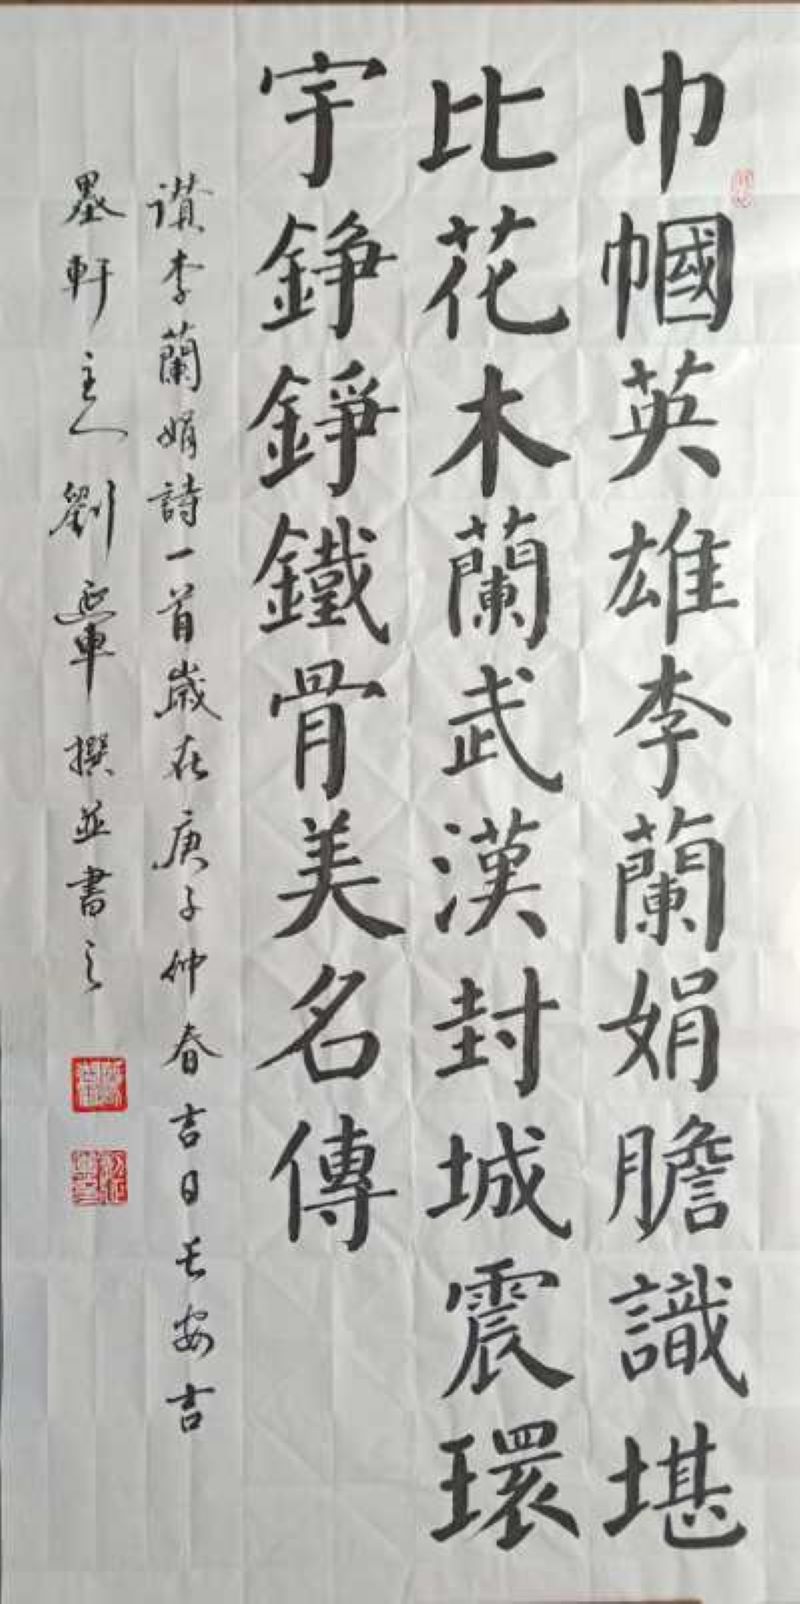 巾幗英雄李蘭娟膽識堪
比花木蘭武漢封城震環
宇錚錚鐵骨美名傳
讃李蘭娟詩一首歲在庚子仲春吉日長安吉
墨軒主人劉延軍撰並書之